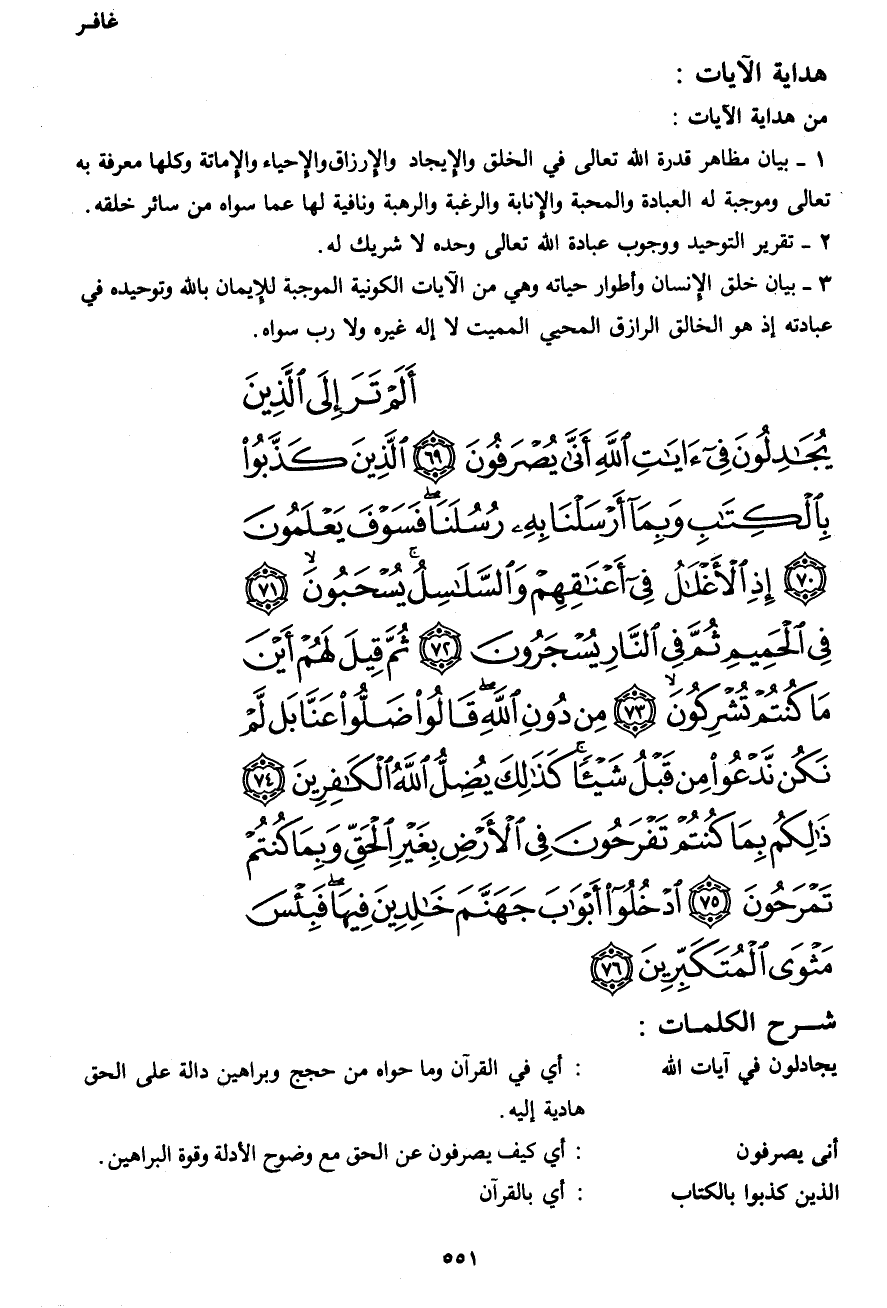 غافـر
هداية الآيات :
من هداية الآيات :
١ ـ بيان مظاهر قدرة الله تعالى في الخلق والإيجاد والإرزاق والإحياء والإماتة وكلها معرفة به
تعالى وموجبة له العبادة والمحبة والإنابة والرغبة والرهبة ونافية لها عما سواه من سائر خلقه .
٢ ـ تقرير التوحيد ووجوب عبادة الله تعالى وحده لا شريك له .
٣ ـ بيان خلق الإنسان وأطوار حياته وهي من الآيات الكونية الموجبة للإيمان بالله وتوحيده في
عبادته إذ هو الخالق الرازق المحيي المميت لا إله غيره ولا رب سواه .
أَلَمْ تَرَ إِلَى ٱلَّذِينَ
يُجَٰدِلُونَ فِىٓ ءَايَٰتِ ٱللَّهِ أَنَّىٰ يُصْرَفُونَ ۝٦٩ ٱلَّذِينَ كَذَّبُوا۟
بِٱلْكِتَٰبِ وَبِمَآ أَرْسَلْنَا بِهِۦ رُسُلَنَا ۖ فَسَوْفَ يَعْلَمُونَ
۝٧٠ إِذِ ٱلْأَغْلَٰلُ فِىٓ أَعْنَٰقِهِمْ وَٱلسَّلَٰسِلُ يُسْحَبُونَ ۝٧١
فِى ٱلْحَمِيمِ ثُمَّ فِى ٱلنَّارِ يُسْجَرُونَ ۝٧٢ ثُمَّ قِيلَ لَهُمْ أَيْنَ
مَا كُنتُمْ تُشْرِكُونَ ۝٧٣ مِن دُونِ ٱللَّهِ ۖ قَالُوا۟ ضَلُّوا۟ عَنَّا بَل لَّمْ
نَكُن نَّدْعُوا۟ مِن قَبْلُ شَيْـًٔا ۚ كَذَٰلِكَ يُضِلُّ ٱللَّهُ ٱلْكَٰفِرِينَ ۝٧٤
ذَٰلِكُم بِمَا كُنتُمْ تَفْرَحُونَ فِى ٱلْأَرْضِ بِغَيْرِ ٱلْحَقِّ وَبِمَا كُنتُمْ
تَمْرَحُونَ ۝٧٥ ٱدْخُلُوٓا۟ أَبْوَٰبَ جَهَنَّمَ خَٰلِدِينَ فِيهَا ۖ فَبِئْسَ
مَثْوَى ٱلْمُتَكَبِّرِينَ ۝٧٦
شـرح الكلمـات :
يجادلون في آيات الله : أي في القرآن وما حواه من حجج وبراهين دالة على الحق
هادية إليه .
أنى يصرفون : أي كيف يصرفون عن الحق مع وضوح الأدلة وقوة البراهين .
الذين كذبوا بالكتاب : أي بالقرآن
٥٥١